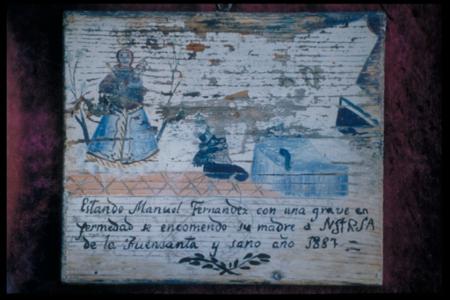 Estando Manuel Fernandez con una grave en
fermedad se encomendo su madre á NSTRSA
de la Fuensanta y sano año 1887